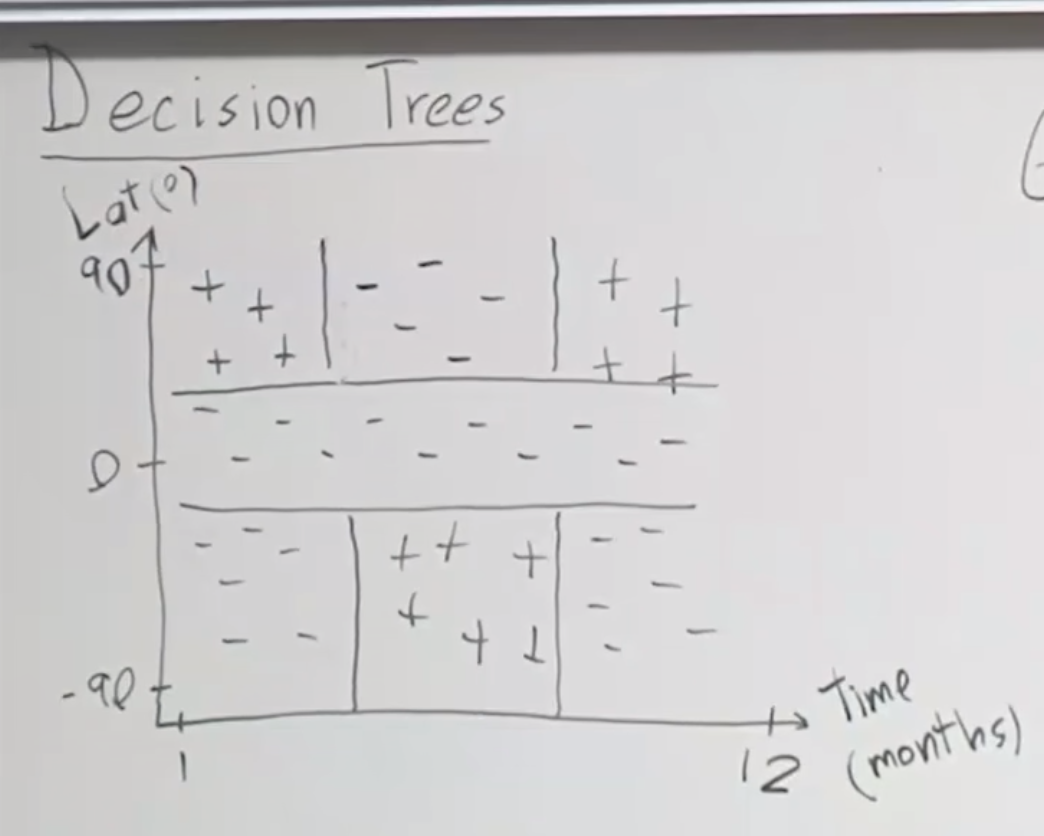 Decision Trees
Lat(°)
90
+ + + + | - - - - - | + + + +
- - - - - - - - - - - -
0
- - - - - - | + + + + + + | - - - - - -
-90
1
12
Time
(months)